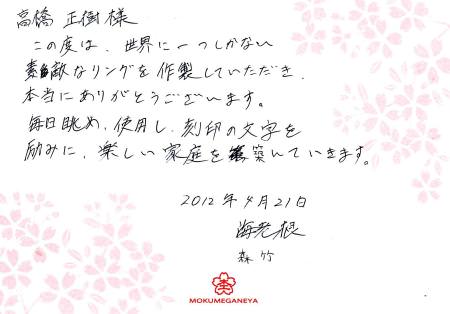 高橋 正樹 様
この度は、世界に一つしかない
素敵なリングを作製していただき、
本当にありがとうございます。
毎日眺め、使用し、刻印の文字を
励みに、楽しい家庭を築いていきます。
2012年4月21日
海老根
森竹
MOKUMEGANEYA